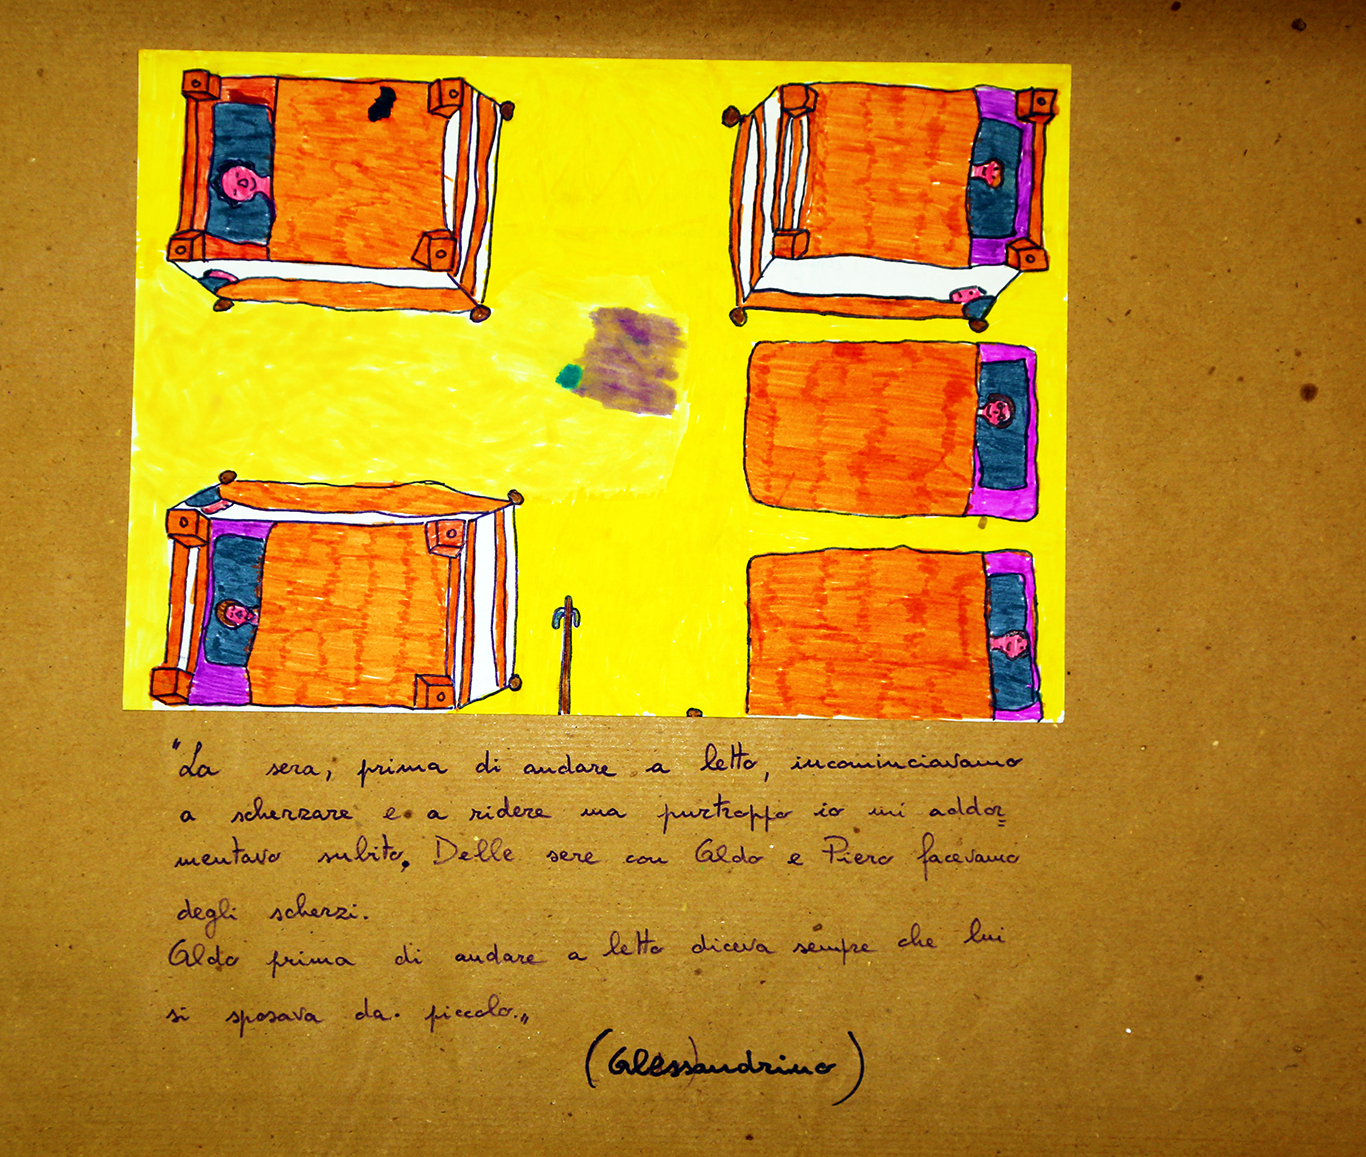 "La sera, prima di andare a letto, incominciavamo
a scherzare e a ridere ma purtroppo io mi addor=
mentavo subito. Delle sere con Aldo e Piero facevamo
degli scherzi.
Aldo prima di andare a letto diceva sempre che lui
si sposava da piccolo."
(Alessandrino)